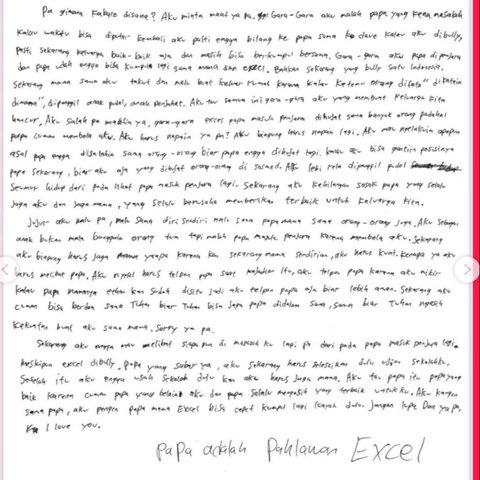 Pa gimana kabare disana? Aku minta maaf ya pa. Gara-Gara aku malah papa yang kena masalah
kalau waktu bisa diputer kembali aku pasti engga bilang ke papa sama ko dave kalau aku dibully,
pasti sekarang keluarga baik-baik aja dan masih bisa berkumpul bersama. Gara-gara aku papa dipenjara
dan papa udah engga bisa kumpul lagi sama mama dan excel. Bahkan sekarang yang bully satu Indonesia.
Sekarang mama sama aku takut dan malu buat keluar rumah karena kalau ketemu orang difoto" dikatain
dimana", dipanggil anak pudel, anak penjahat. Aku tau semua ini gara-gara aku yang membuat keluarga kita
hancur. Aku salah pa maafin ya, gara-gara excel papa masuk penjara dihujat sama banyak orang padahal
papa cuman membela aku. Aku harus ngapain ya pa? Aku bingung harus ngapain lagi. Aku mau melakuin apapun
asal papa engga disalahin sama orang-orang biar papa engga dihujat lagi. kalau aku bisa gantiin posisinya
papa sekarang, biar aku aja yang dihujat orang-orang di sosmed. Aku lebi rela dipanggil pudel
seumur hidup dari pada lihat papa masuk penjara lagi. Sekarang aku kehilangan sosok papa yang selalu
jaga aku dan jaga mama, yang selalu berusaha memberikan terbaik untuk keluarga kita.
Jujur aku malu pa, malu sama diri sendiri malu sama papa mama sama orang-orang juga. Aku sebagai
anak bukan malah banggain orang tua tapi malah papa masuk penjara karena membela aku. Sekarang
aku bingung harus jaga mama yaapa karena kan sekarang mama sendirian, aku harus kuat. Kenapa ya aku
harus melibat papa. Aku nyesel harus telpon papa saat kejadian itu, aku telpon papa karena aku mikir
kalau papa mamanya ethan kan sudah disitu jadi aku telpon papa aja biar lebih aman. Sekarang aku
cuman bisa berdoa sama Tuhan biar Tuhan bisa jaga papa didalam sana, sama biar Tuhan ngasih
kekuatan buat aku sama mama. Sorry ya pa.
Sekarang aku engga mau melibat siapapun di masalah ku lagi pa dari pada papa masuk penjara lagi
meskipun excel dibully. papa yang sabar ya, aku sekarang harus selesaikan dulu ujian sekolahku.
Setelah itu aku engga usah sekolah dulu kan aku harus jaga mama. Aku tau papa itu papa yang
baik karena cuma papa yang belain aku dan papa selalu mengasih yang terbaik untukku. Aku kangen
sama papa, aku pengen papa mama Excel bisa cepet kumpul lagi kayak dulu. Jangan lupa Doa ya pa,
I love you.
PaPa adalah Pahlawan Excel